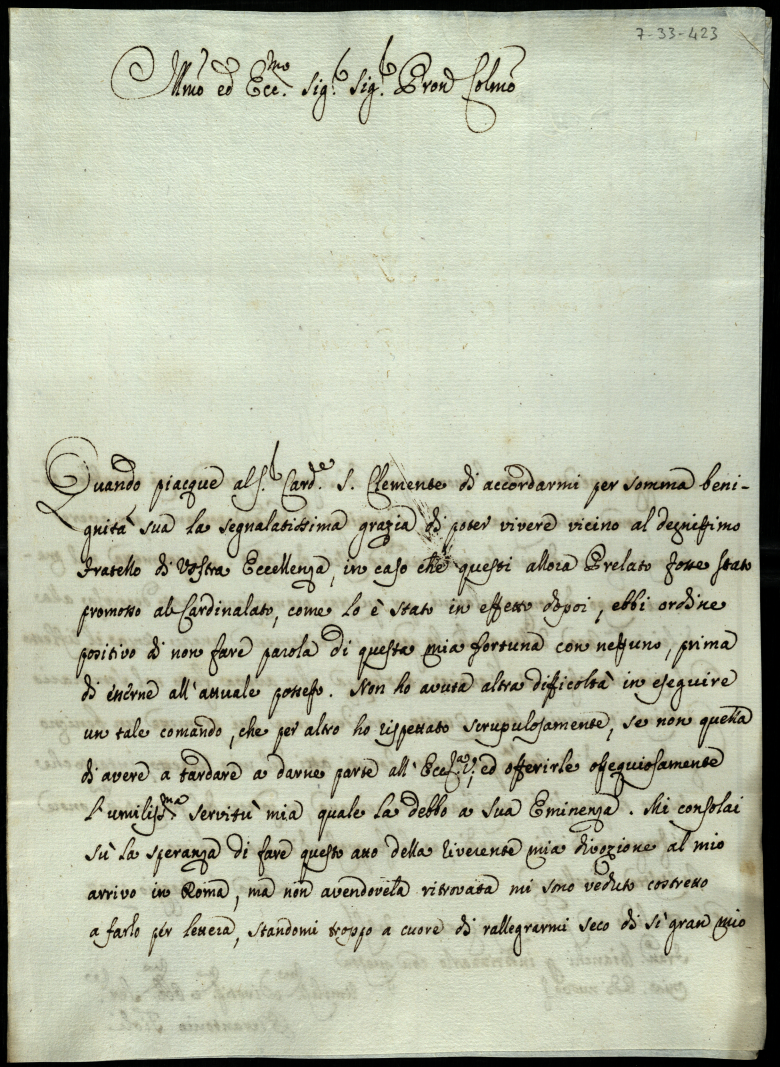 7-33-423
Illmo ed Ecc.mo Sig.r Sig.r Pron Colmo
Quando piacque al S.r Card.e S. Clemente di accordarmi per somma beni-
gnità sua la segnalatissima grazia di poter vivere vicino al degnissimo
Fratello di Vostra Eccellenza, in caso che questi allora Prelato fosse stato
promosso al Cardinalato, come lo è stato in effetto dipoi, ebbi ordine
positivo di non fare parola di questa mia fortuna con nessuno, prima
di esserne all'attuale possesso. Non ho avuta altra difficoltà in eseguire
un tale comando, che per altro ho rispettato scrupulosamente, se non quella
di avere a tardare a darne parte all'Ecc.za V., ed offerirle ossequiosamente
l'umiliss.ma servitù mia quale la debbo a Sua Eminenza. Mi consolai
sù la speranza di fare questo atto della riverente mia divozione al mio
arrivo in Roma, ma non avendovela ritrovata mi sono veduto costretto
a farlo per lettera, standomi troppo a cuore di rallegrarmi seco di sì gran mio